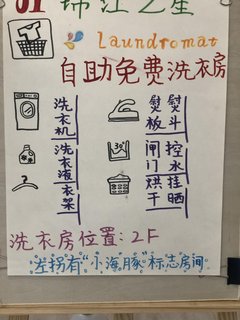 锦江之星
Laundromat
自助免费洗衣房
洗衣机
熨斗
熨板
洗衣液
衣架
控水挂晒
闸门烘干
洗衣房位置:2F
左拐有“小海豚”标志房间